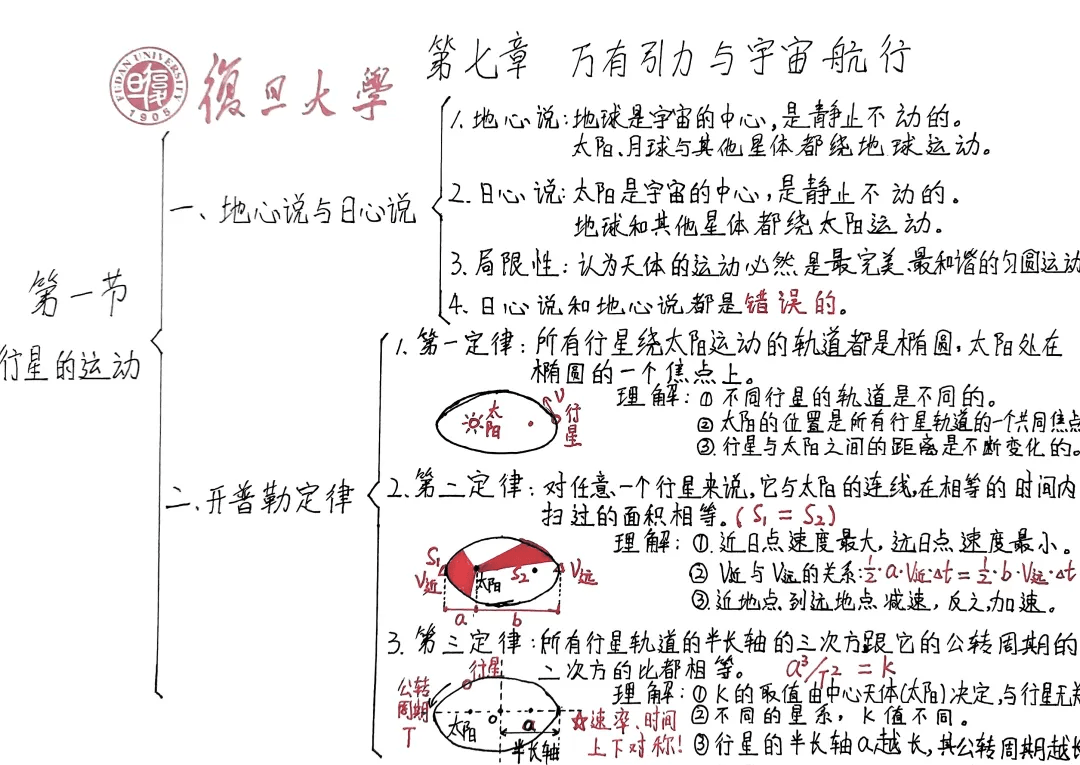 第七章 万有引力与宇宙航行
FUDAN UNIVERSITY
1905
復旦大學
第一节
行星的运动
一、地心说与日心说
1.地心说:地球是宇宙的中心,是静止不动的。
太阳、月球与其他星体都绕地球运动。
2.日心说:太阳是宇宙的中心,是静止不动的。
地球和其他星体都绕太阳运动。
3.局限性:认为天体的运动必然是最完美、最和谐的匀圆运动
4.日心说和地心说都是错误的。
二、开普勒定律
1.第一定律:所有行星绕太阳运动的轨道都是椭圆,太阳处在
椭圆的一个焦点上。
太阳
V
行星
理解:①不同行星的轨道是不同的。
②太阳的位置是所有行星轨道的一个共同焦点
③.行星与太阳之间的距离是不断变化的。
2.第二定律:对任意一个行星来说,它与太阳的连线,在相等的时间内
扫过的面积相等。(S₁=S₂)
S₁
V近
太阳
S₂
V远
a
b
理解:①.近日点速度最大,远日点速度最小。
② V近与V远的关系:½·a·V近·Δt=½·b·V远·Δt
③.近地点到远地点减速,反之,加速。
3.第三定律:所有行星轨道的半长轴的三次方跟它的公转周期的
二次方的比都相等。 a³/T²=k
行星
公转
周期
T
太阳
o
a
半长轴
☆速率、时间
上下对称!
理解:①K的取值由中心天体(太阳)决定,与行星无
②不同的星系,K值不同。
③行星的半长轴a越长,其公转周期越长